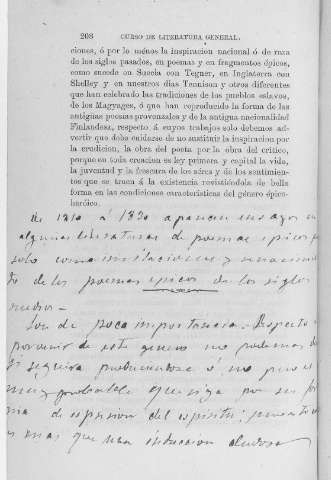 208 CURSO DE LITERATURA GENERAL.
ciones, ó por lo ménos la inspiracion nacional ó de raza
de los siglos pasados, en poemas y en fragmentos épicos,
como sucede en Suecia con Tegner, en Inglaterra con
Shelley y en nuestros dias Tennison y otros diferentes
que han celebrado las tradiciones de los pueblos eslavos,
de los Magyages, ó que han reproducido la forma de las
antiguas poesías provenzales y de la antigua nacionalidad
Finlandesa, respecto á cuyos trabajos solo debemos ad-
vertir que debe cuidarse de no sustituir la inspiracion por
la erudicion, la obra del poeta por la obra del crítico,
porque en toda creacion es ley primera y capital la vida,
la juventud y la frescura de los séres y de los sentimien-
tos que se traen á la existencia revistiéndola de bella
forma en las condiciones características del género épico-
heróico.
de 1810 á 1820 aparecen ensayos en
algunas literaturas de poemas epicos
solo como imitaciones y
to de los poemas epicos de los siglos
medios-
Son de poca importancia.- Respecto
porvenir de este genero no podemos
si seguirá produciendose ó no pero es
muy probable que siga por ser
ma de espresion del espiritu;
mas que una induccion dudosa